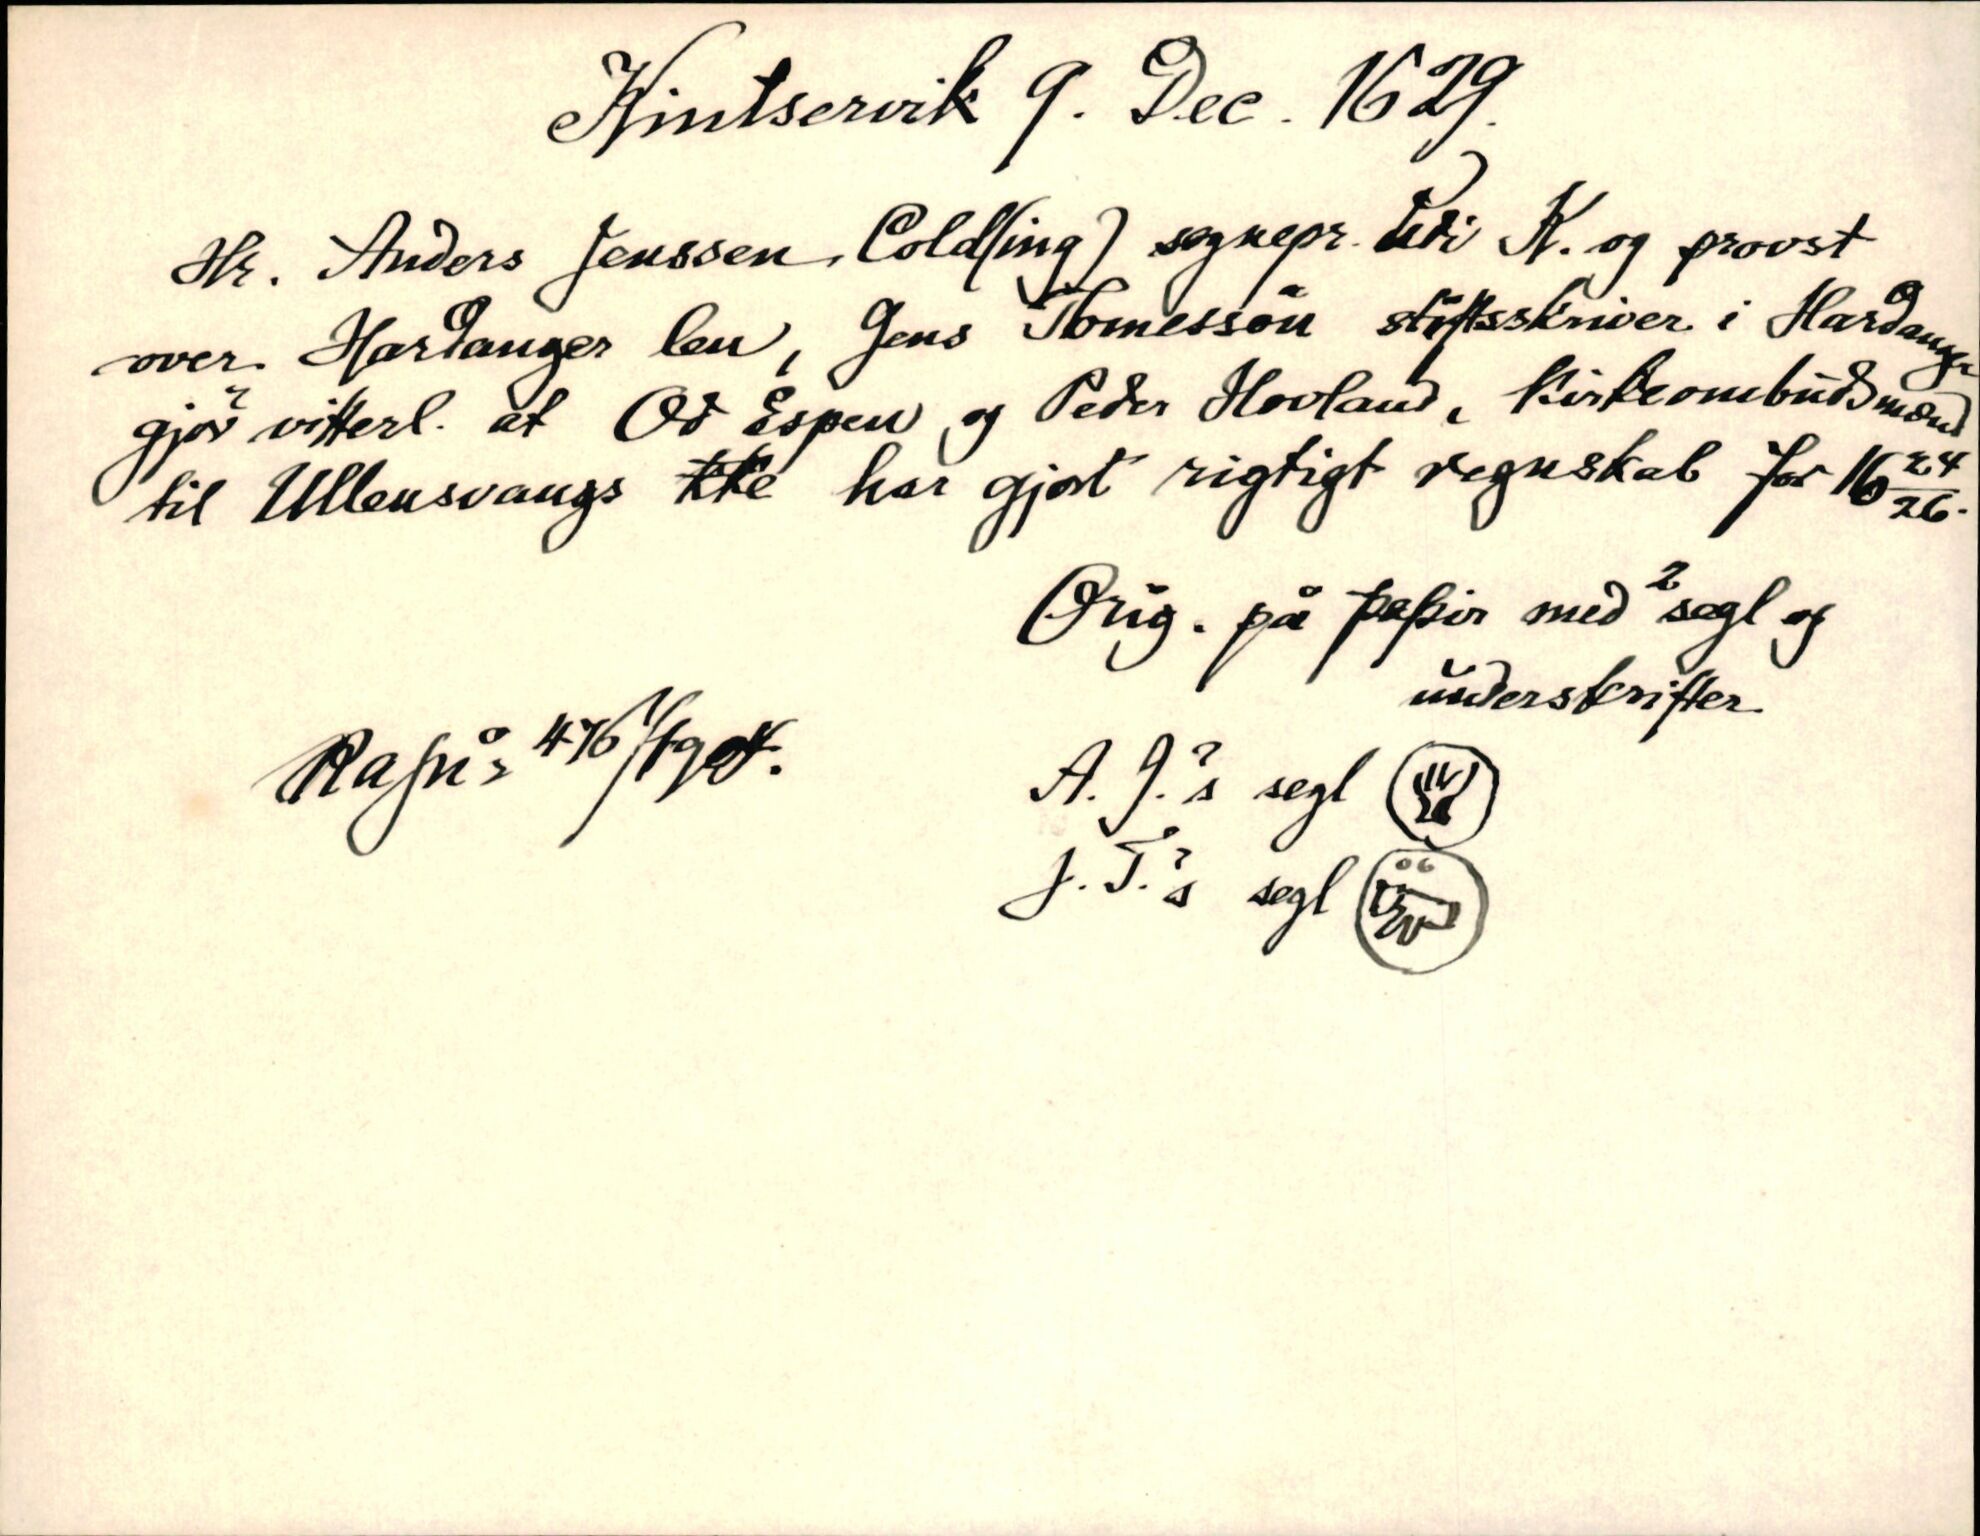 Kintservik 9. Dec. 1629.
Hr. Anders Jenssen Cold(ing) sognepr. udi K. og provst
over Hardanger len, Jens Tomessön stiftsskriver i Hardanger
gjör vitterl. at Od Espen og Peder Hovland, kirkeombudsmænd
til Ullensvangs kke har gjort rigtigt regnskab for 16 24/26.
Orig. på papir med 2 segl og
underskrifter
A. J.'s segl
J. T.'s segl